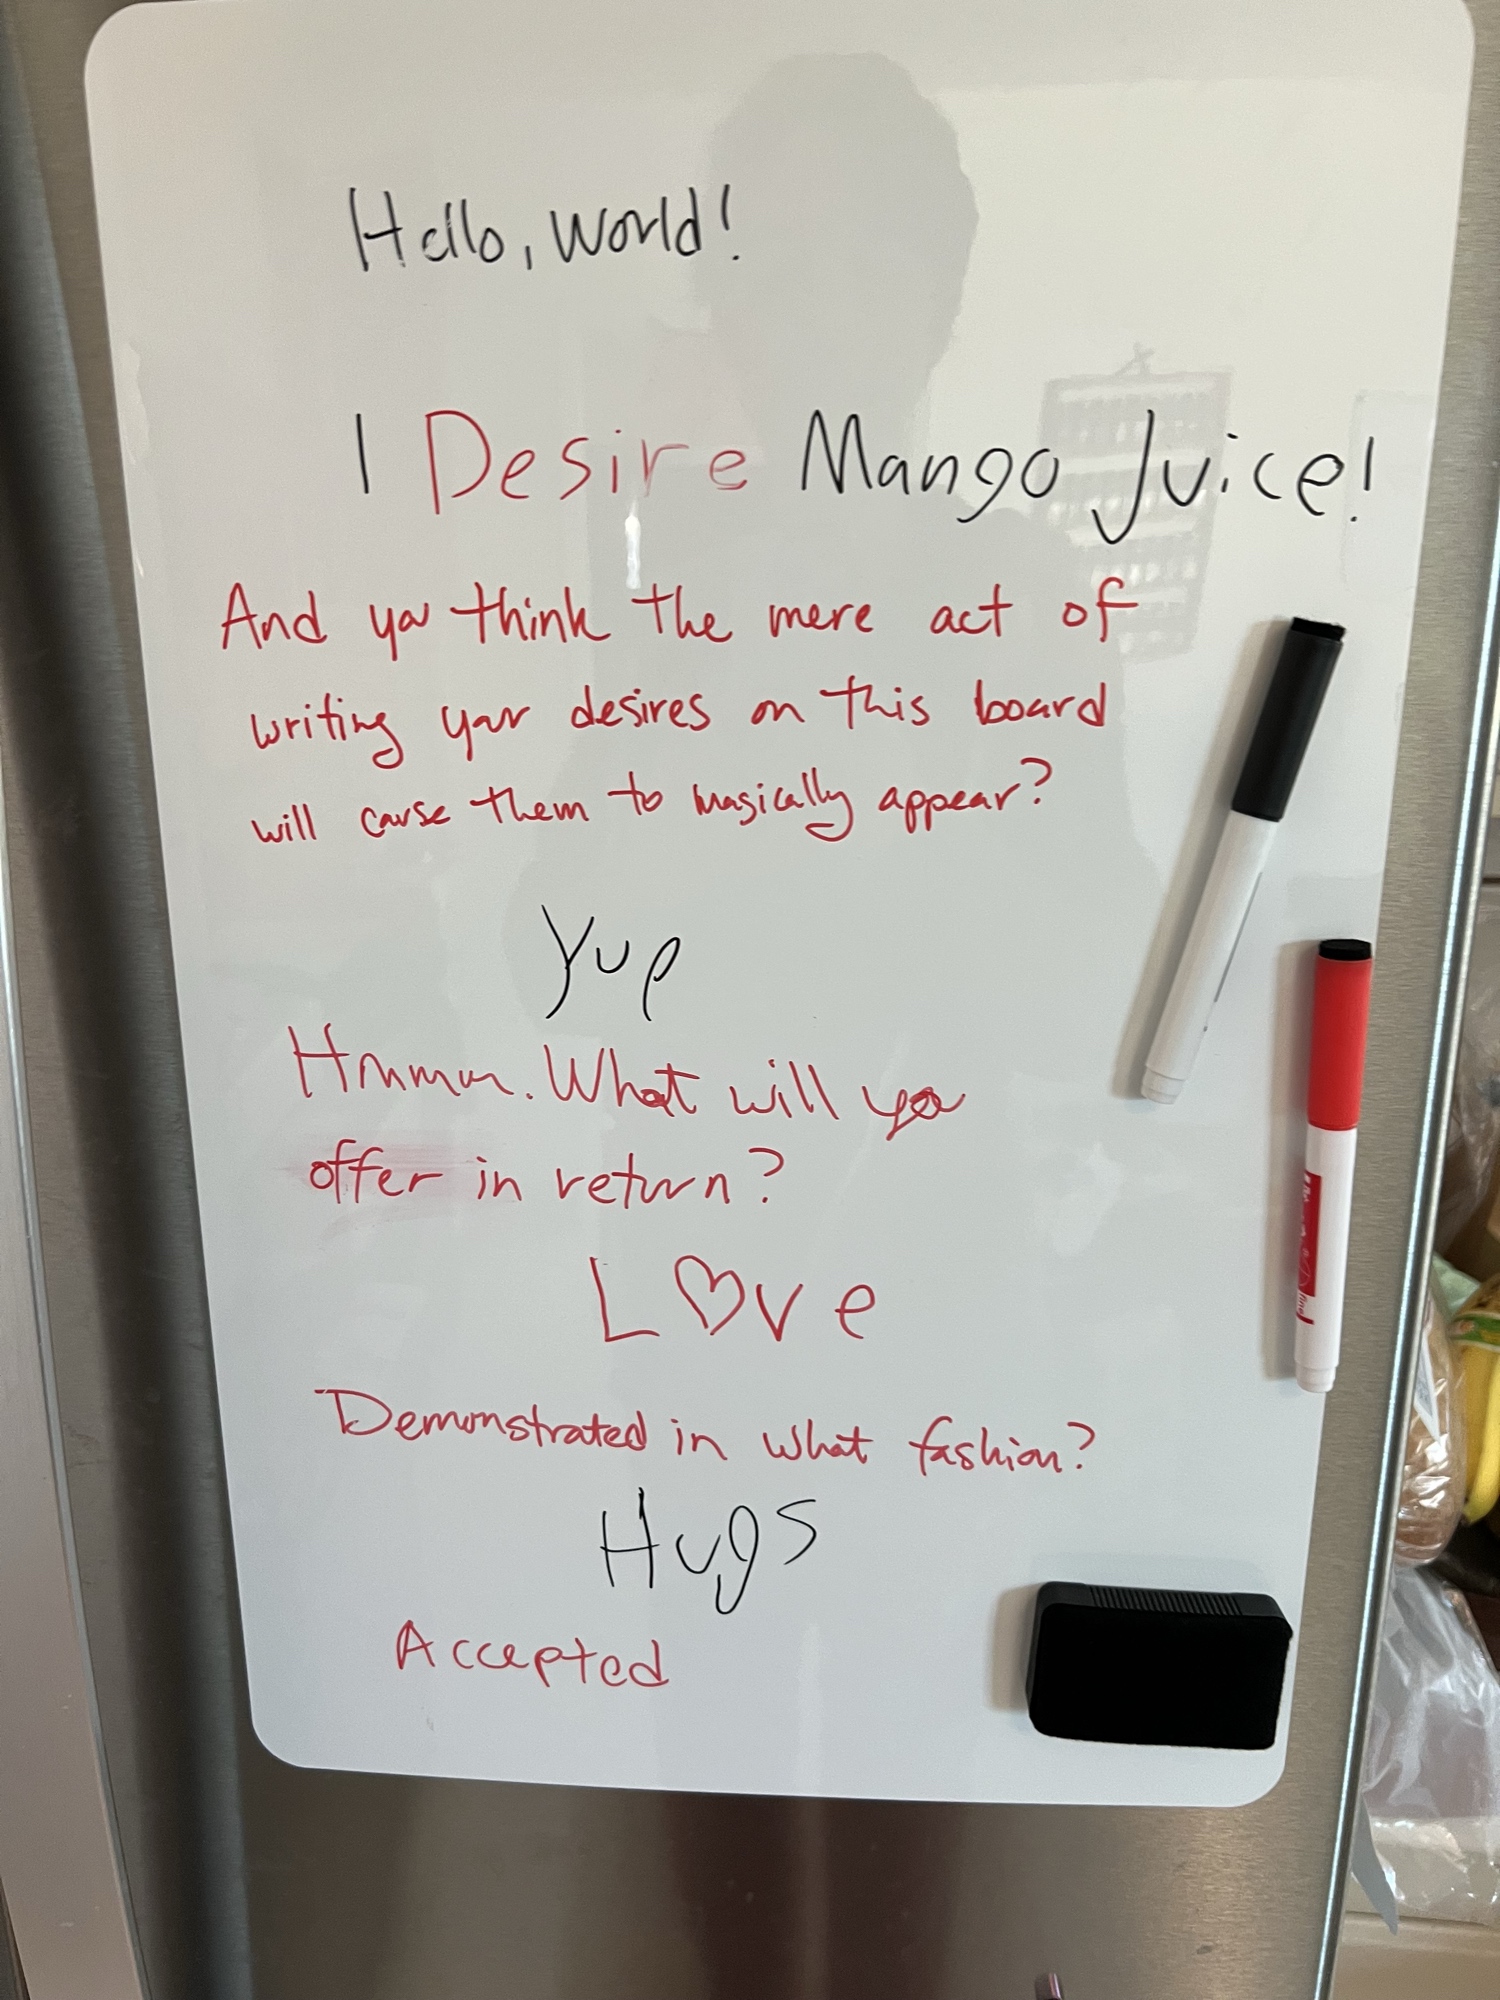 Hello, World!
I Desire Mango Juice!
And you think the mere act of
writing your desires on this board
will cause them to magically appear?
Yup
Hmmmm. What will you
offer in return?
L♡ve
Demonstrated in what fashion?
Hugs
Accepted